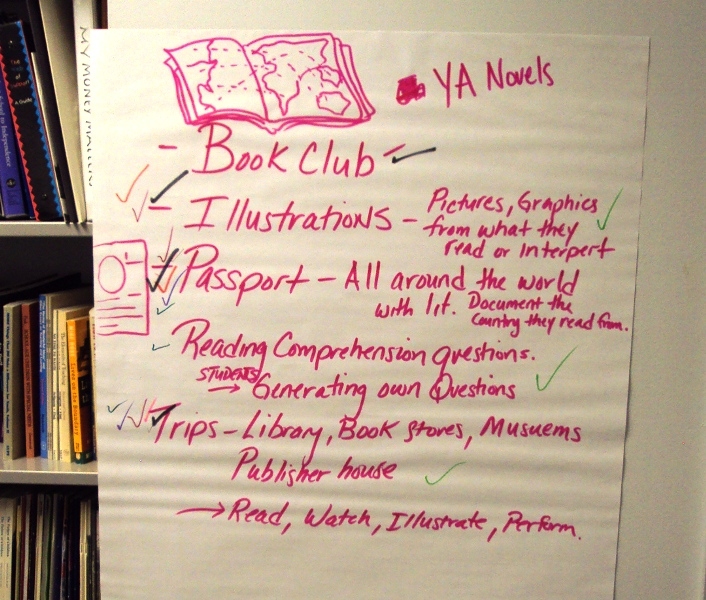 YA Novels
- Book Club -
- Illustrations - Pictures, Graphics
from what they
read or Interpert
- Passport - All around the world
with lit. Document the
Country they read from.
Reading Comprehension questions.
STUDENTS → Generating own Questions
Trips - Library, Book stores, Musuems
Publisher house
→ Read, Watch, Illustrate, Perform.
MY MONEY
A Guide